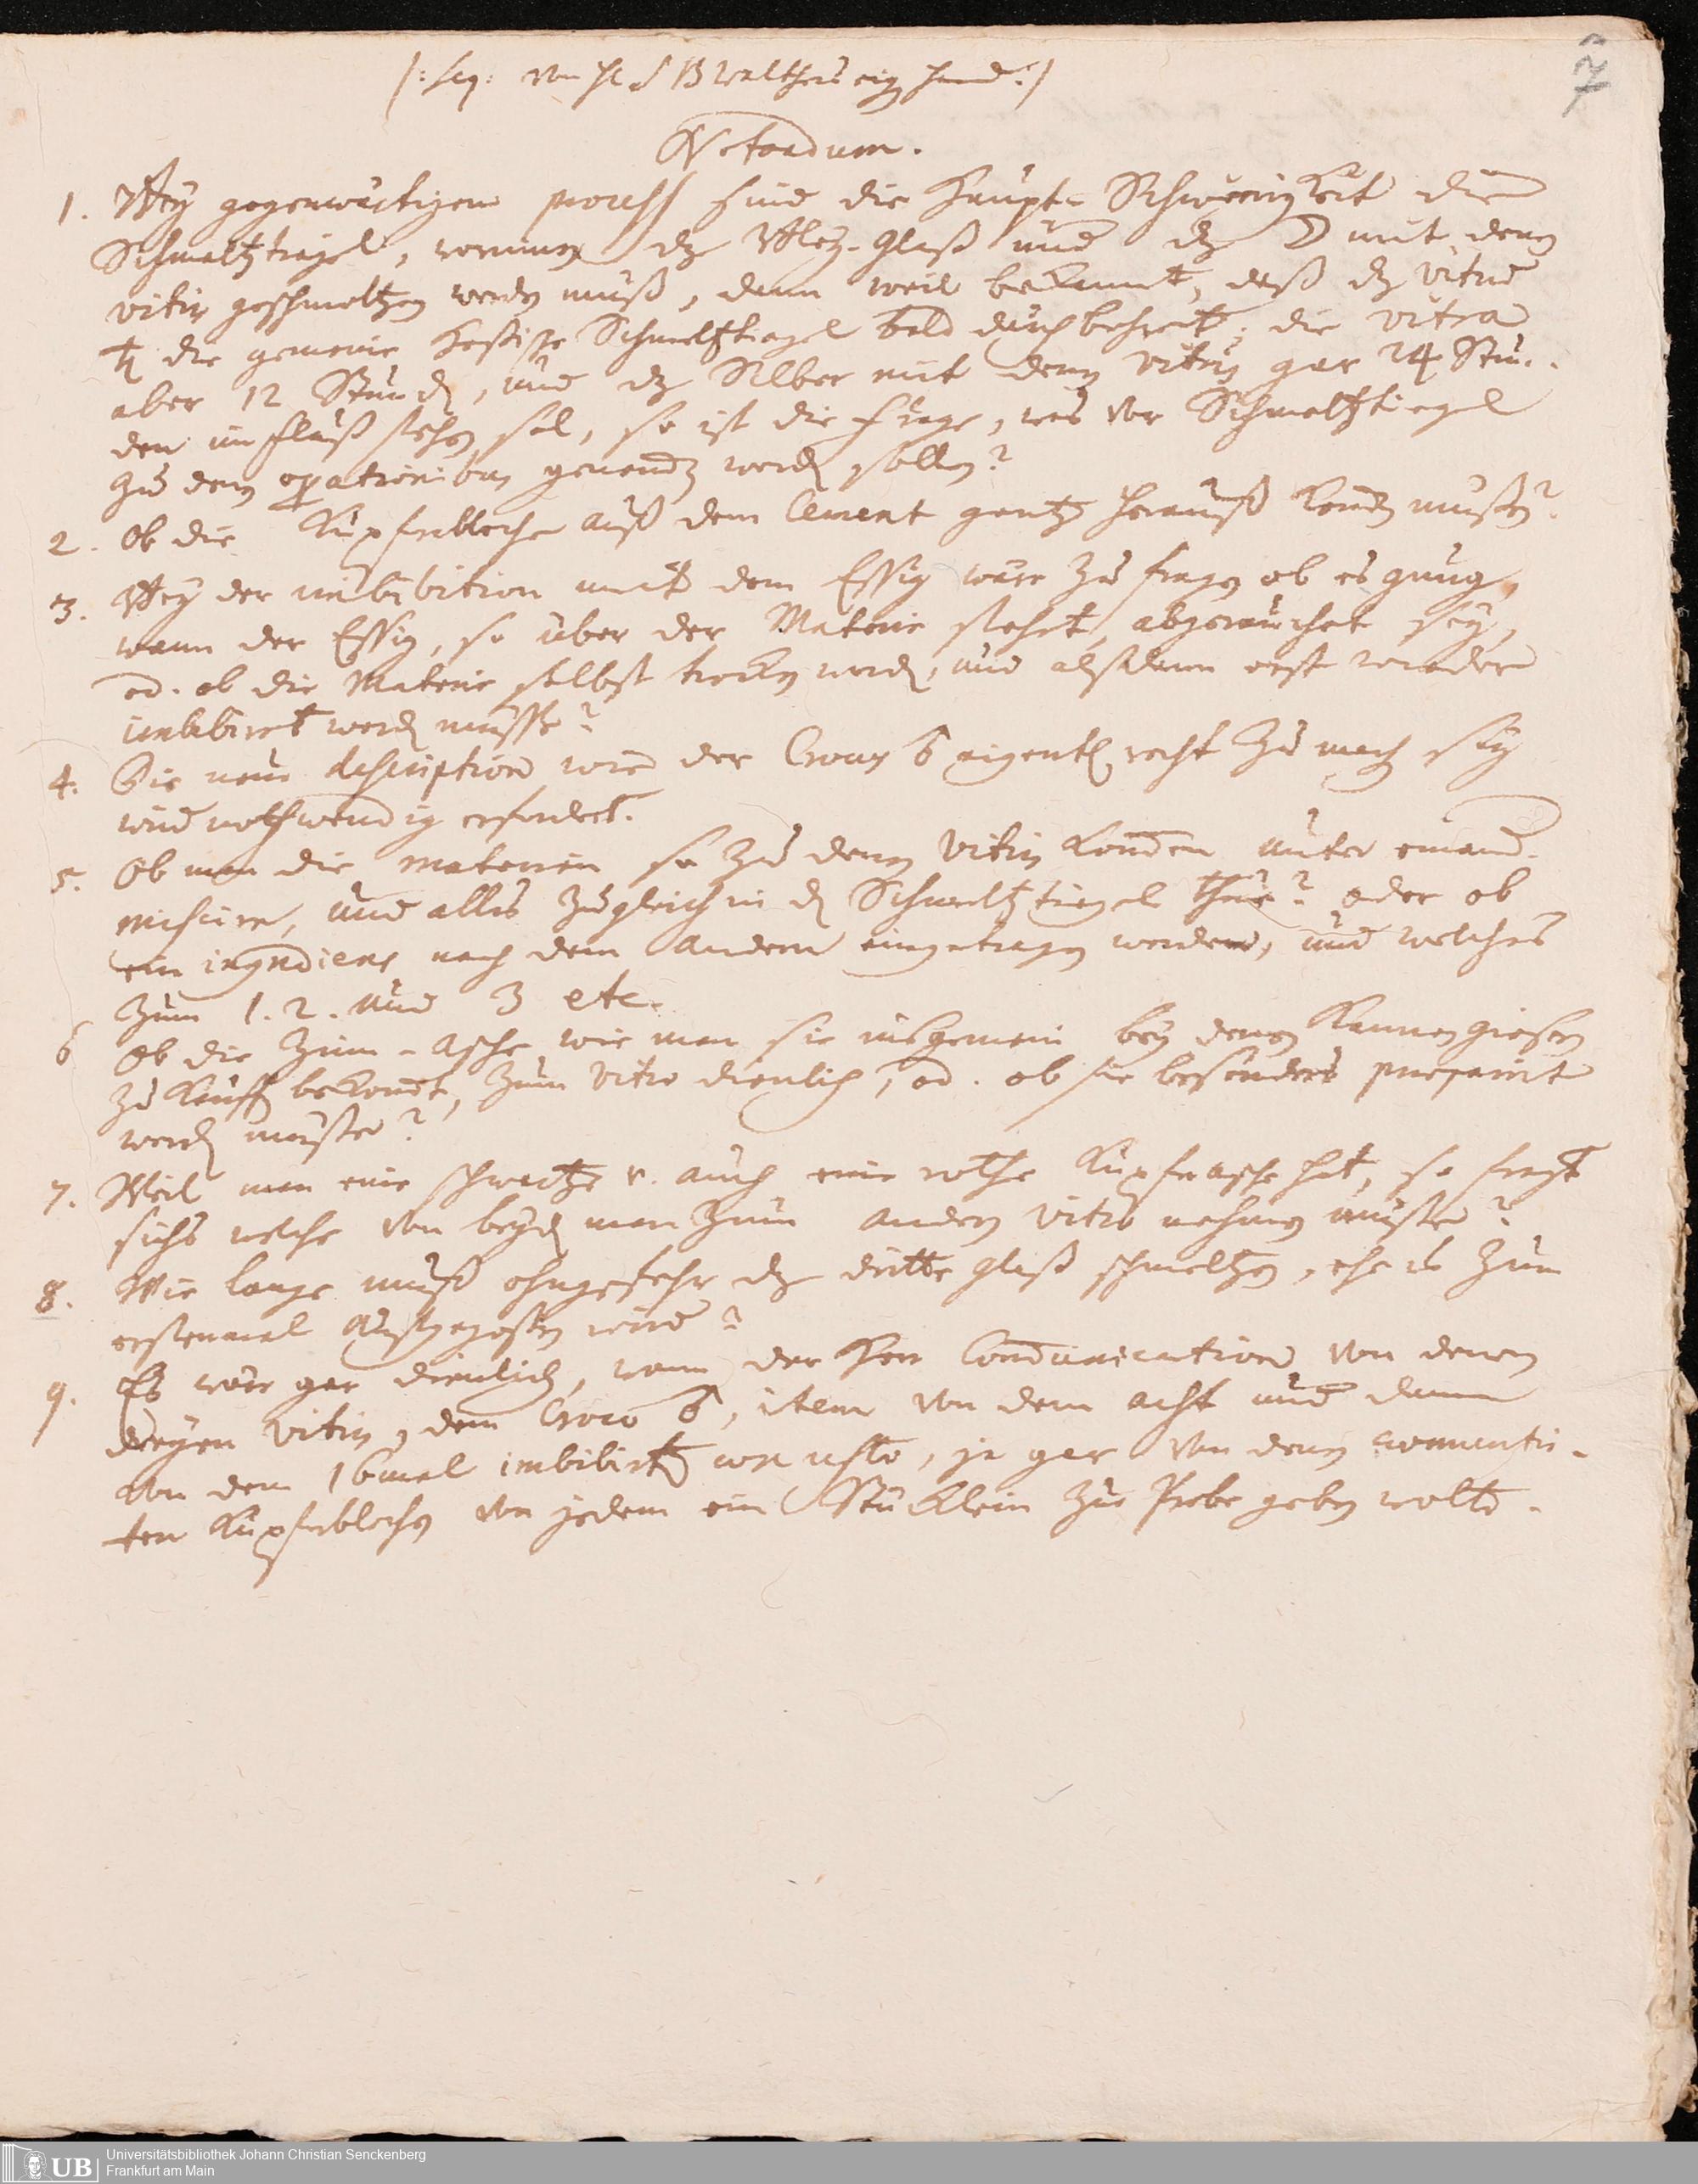 7
/: seq: von H. D B Walthers eig hand :/
Notandum.
1. Bey gegenwärtigem process sind die Haupt-Schwürigkeit die
Schmeltztiegel, worinnen dz Bley-Glaß und dz ☽ mit denen
vitris geschmoltzen werden muß, dann weil bekannt, daß dz vitrum
♄ die gemeine Heßische Schmeltztiegel bald durchbohret; die vitra
aber 12 Stunden, und dz Silber mit denen vitris gar 24 Stun-
den im Fluß stehen sol, so ist die Frage, was vor Schmeltztiegel
zu denen operationibus genommen werden sollen?
2. Ob die Kupferbleche auß dem Cement gantz herauß kommen mußen?
3. Bey der imbibition mit dem Essig wäre zu fragen ob es gnug,
wann der Essig, so über der Materie stehet, abgerauchet sey,
od. ob die Materie selbst trocken werden, und alßdann erst wieder
imbibiret werden müsse?
4. Die neue description wie der Crocus ♁ eigentl. recht zu machen sey
wird nothwendig erfordert.
5. Ob man die materien so zu denen vitris kommen unter einand.
miscire, und alles zugleich in den Schmeltztiegel thue? oder ob
ein ingrediens nach dem andern eingetragen werden, und welches
zum 1. 2. und 3 etc.
6 Ob die Zinn-Asche wie man sie insgemein bey denen Kannengiesern
zu Kauff bekommt, zum vitro dienlich, od. ob sie besonders praeparirt
werden müste?
7. Weil man eine schwartze u. auch eine rothe Kupferasche hat, so fragt
sichs welche von beyden man zum andern vitro nehmen müste?
8. Wie lange muß ohngefehr dz dritte Glaß schmeltzen, ehe es zum
erstenmal außgegossen wird?
9. Es wäre gar dienlich, wann der Herr Communication von denen
dreyen vitris, dem Croco ♁, item von dem acht und dann
von dem 16mal imbibirten, ja gar von denen cementir-
ten Kupferblechen von jedem ein Stücklein zur Probe geben wolte.
Universitätsbibliothek Johann Christian Senckenberg
Frankfurt am Main
UB